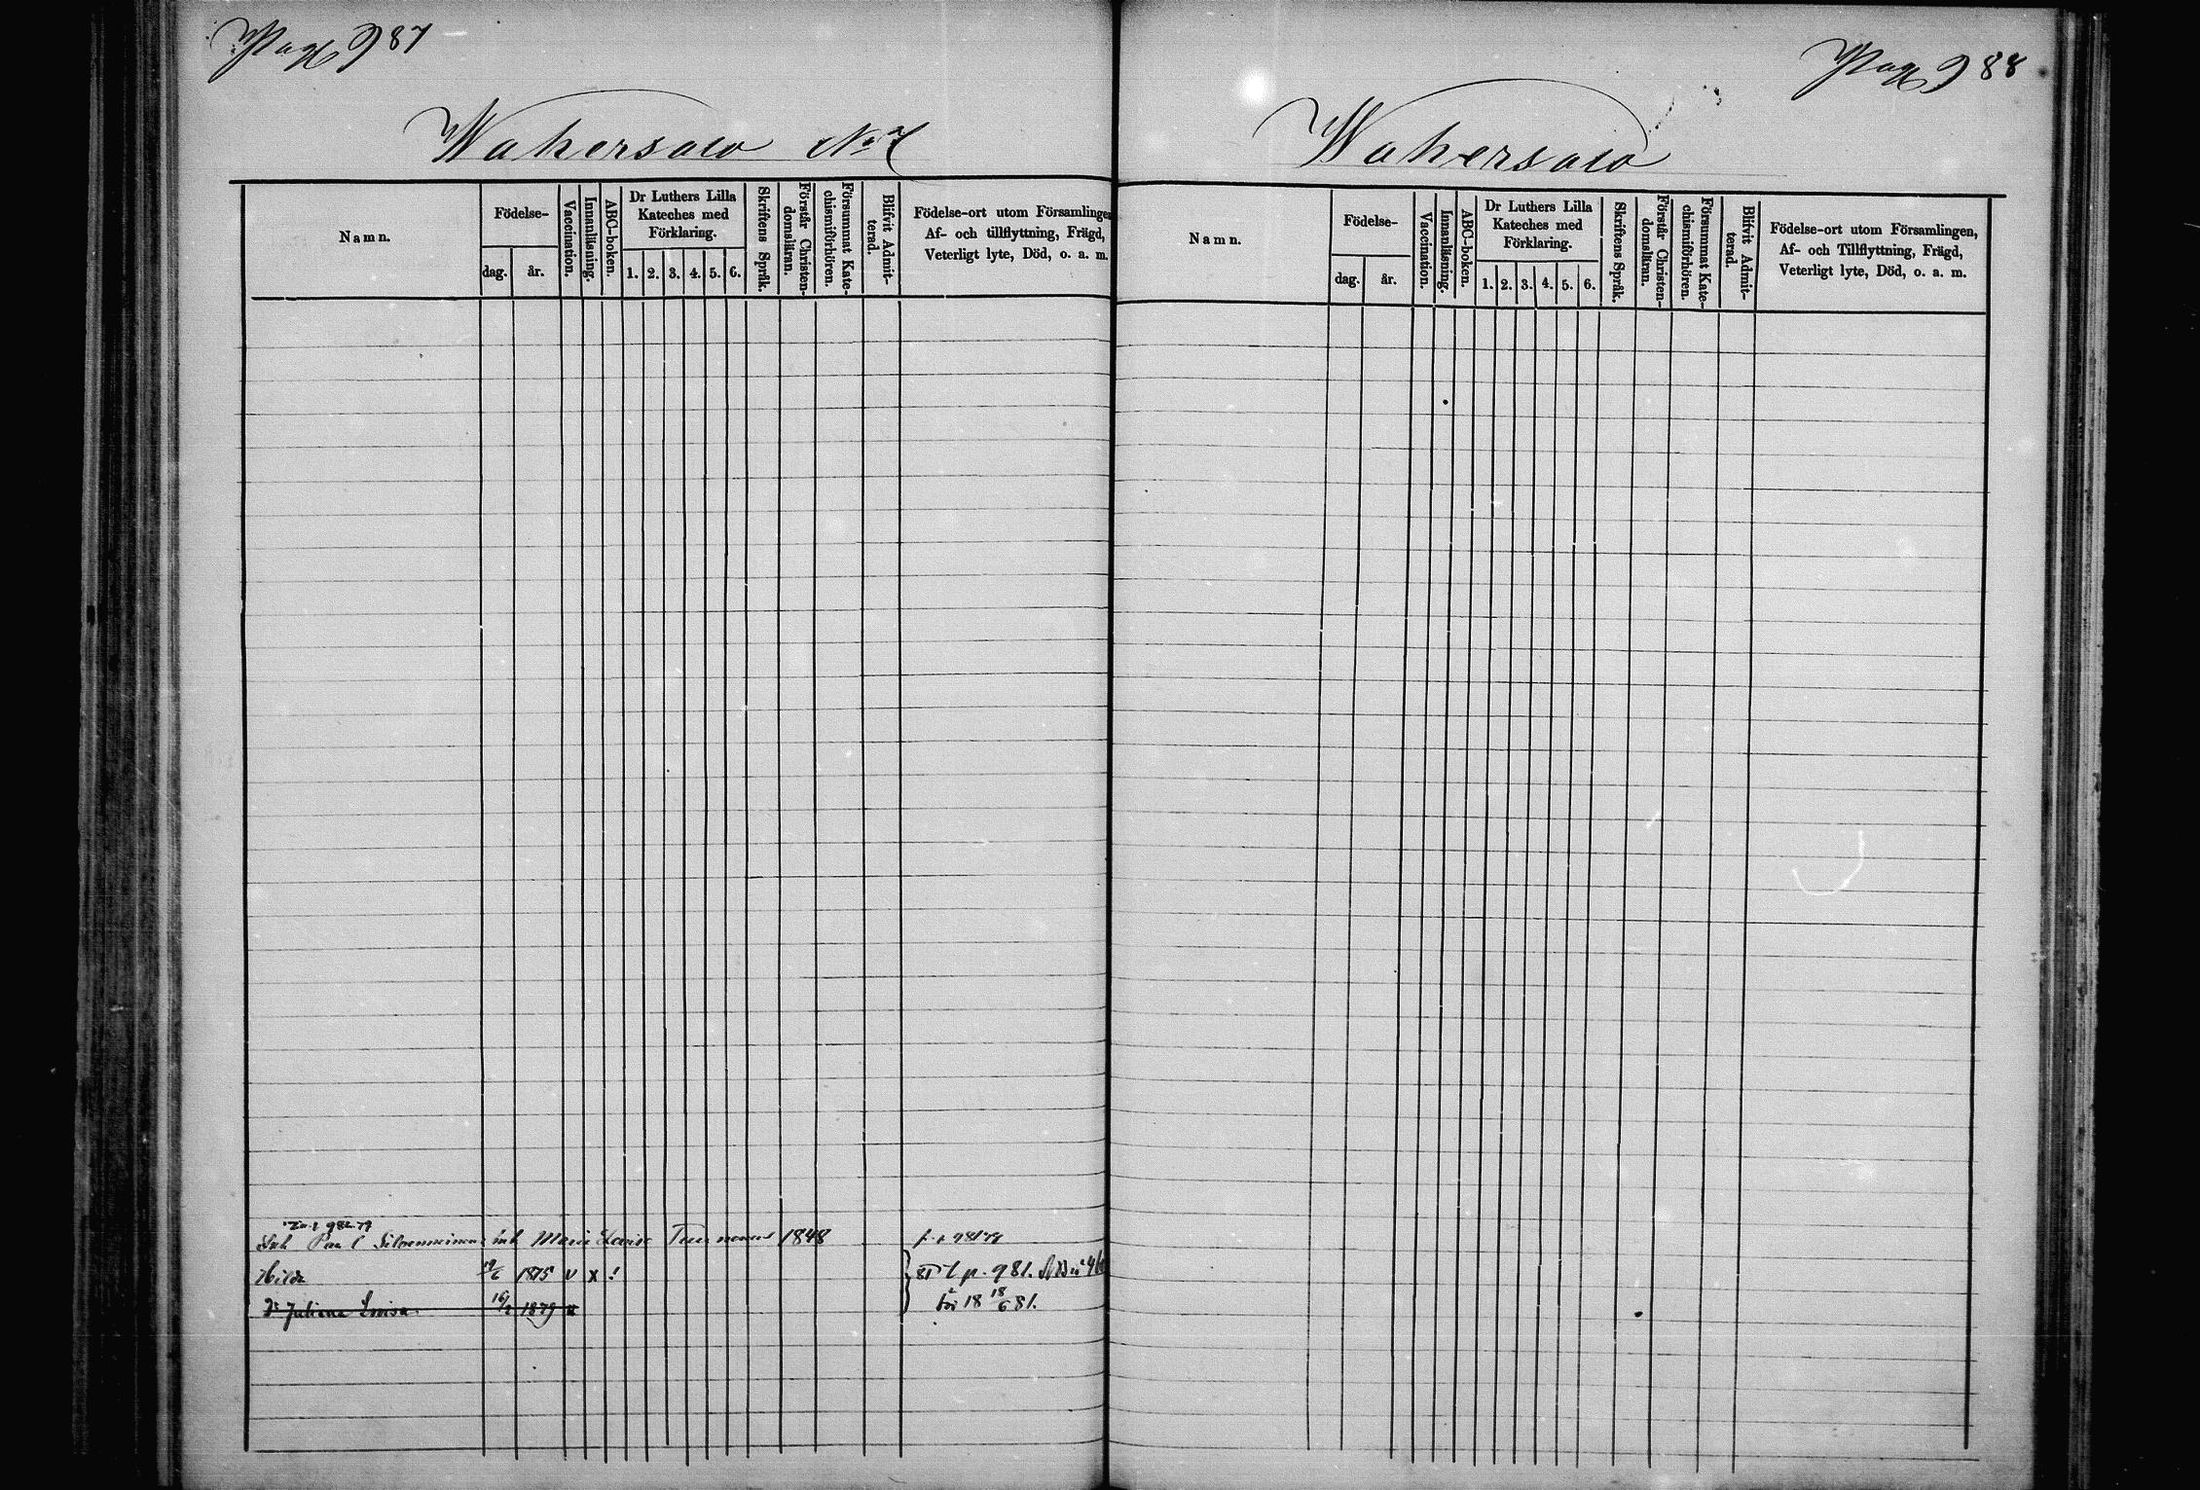 Pag 987
Wahersalo No 7
Namn.
Födelse-
dag.
år.
Vaccination.
Innanläsning.
ABC-boken.
Dr Luthers Lilla
Kateches med
Förklaring.
1. 2. 3. 4. 5. 6.
Skriftens Språk.
Förstår Christen-
domsläran.
Försummat Kate-
chismiförhören.
Blifvit Admit-
terad.
Födelse-ort utom Församlingen
Af- och tillflyttning, Frägd,
Veterligt lyte, Död, o. a. m.
Paul Silvennoinens Maria Lovisa 1848
Hilda 1875 v x p. 981.
Juliana Lovisa 16/2 1879 18 18/6 81.
Pag 988
Wahersalo
Namn.
Födelse-
dag.
år.
Vaccination.
Innanläsning.
ABC-boken.
Dr Luthers Lilla
Kateches med
Förklaring.
1. 2. 3. 4. 5. 6.
Skriftens Språk.
Förstår Christen-
domsläran.
Försummat Kate-
chismiförhören.
Blifvit Admit-
terad.
Födelse-ort utom Församlingen,
Af- och Tillflyttning, Frägd,
Veterligt lyte, Död, o. a. m.